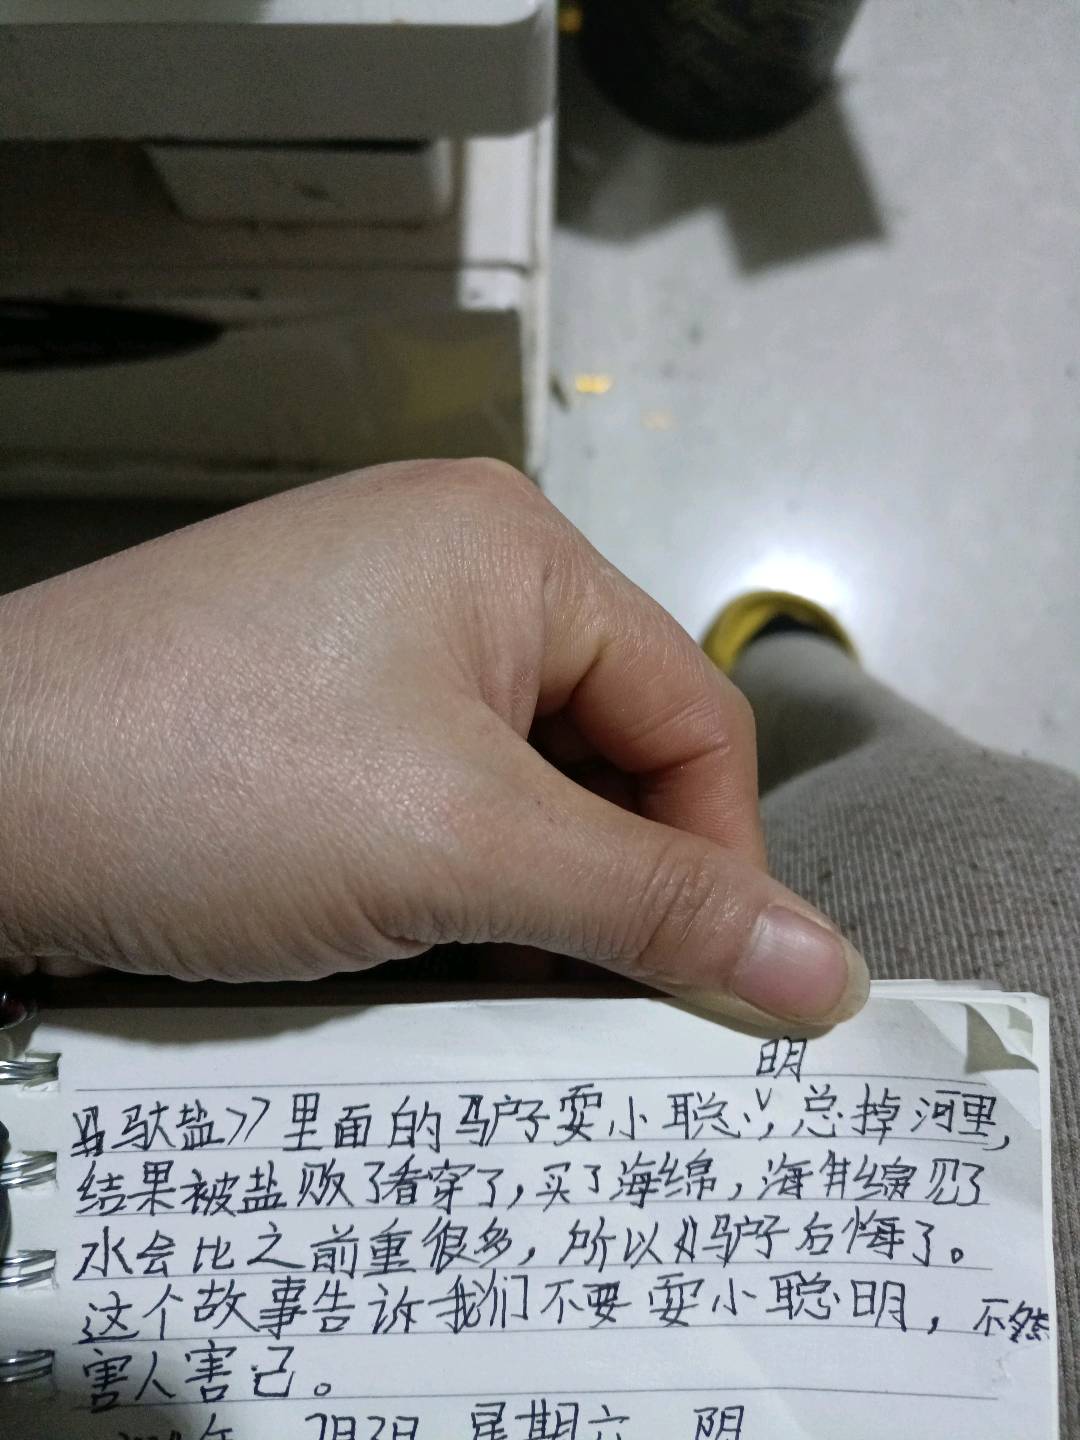 明
《驴驮盐》里面的驴子耍小聪,总掉河里,
结果被盐贩子看穿了,买了海绵,海绵见了
水会比之前重很多,所以驴子后悔了。
这个故事告诉我们不要耍小聪明,不然
害人害己。
年 7月3日 星期六 阴